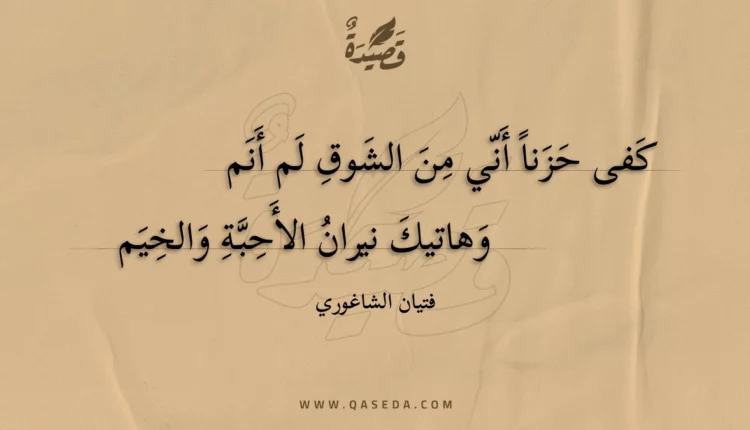 قَصِيدَةٌ
كَفى حَزَناً أَنّي مِنَ الشَوقِ لَم أَنَم
وَهاتيكَ نيرانُ الأَحِبَّةِ وَالخِيَم
فتيان الشاغوري
WWW.QASEDA.COM